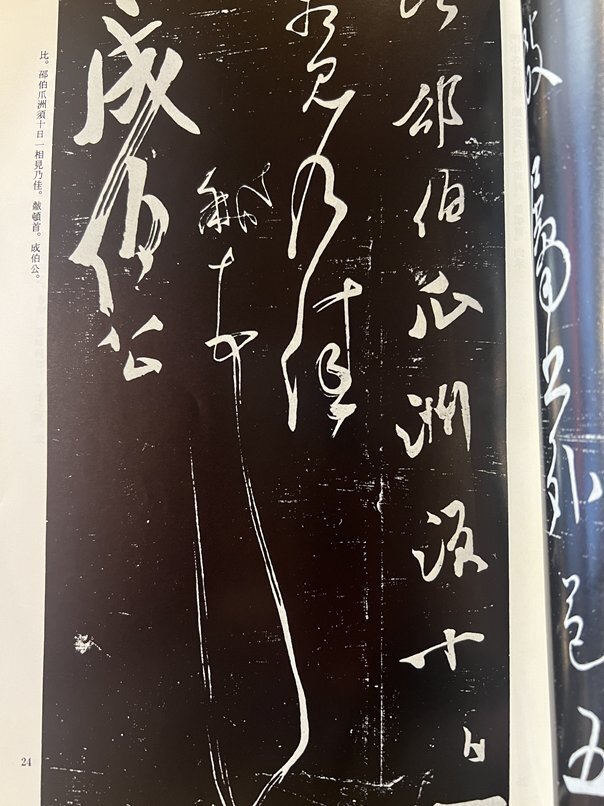 比邵伯瓜洲須十日
相見乃佳
黻頓首
成伯公
比。邵伯爪洲須十日一相見乃佳。黻頓首。成伯公。
24